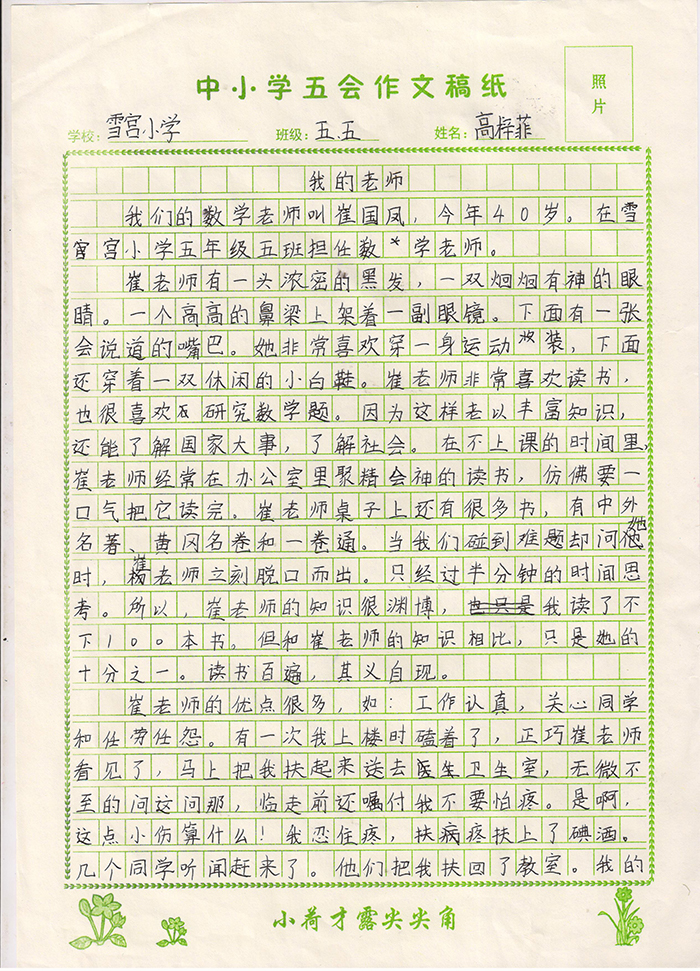 中小学五会作文稿纸
照片
学校: 雪宫小学 班级: 五五 姓名: 高梓菲
我的老师
我们的数学老师叫崔国凤，今年40岁。在雪
宫小学五年级五班担任数*学老师。
崔老师有一头浓密的黑发，一双炯炯有神的眼
睛。一个高高的鼻梁上架着一副眼镜。下面有一张
会说道的嘴巴。她非常喜欢穿一身运动装，下面
还穿着一双休闲的小白鞋。崔老师非常喜欢读书，
也很喜欢研究数学题。因为这样老以丰富知识，
还能了解国家大事，了解社会。在不上课的时间里，
崔老师经常在办公室里聚精会神的读书，仿佛要一
口气把它读完。崔老师桌子上还有很多书，有中外
名著、黄冈名卷和一卷通。当我们碰到难题却问她
时，崔老师立刻脱口而出。只经过半分钟的时间思
考。所以，崔老师的知识很渊博，也只是我读了不
下100本书，但和崔老师的知识相比，只是她的
十分之一。读书百遍，其义自现。
崔老师的优点很多，如：工作认真，关心同学
和任劳任怨。有一次我上楼时磕着了，正巧崔老师
看见了，马上把我扶起来送去医生卫生室，无微不
至的问这问那，临走前还嘱付我不要怕疼。是啊，
这点小伤算什么！我忍住疼，扶病疼扶上了碘洒。
几个同学听闻赶来了。他们把我扶回了教室。我的
小荷才露尖尖角